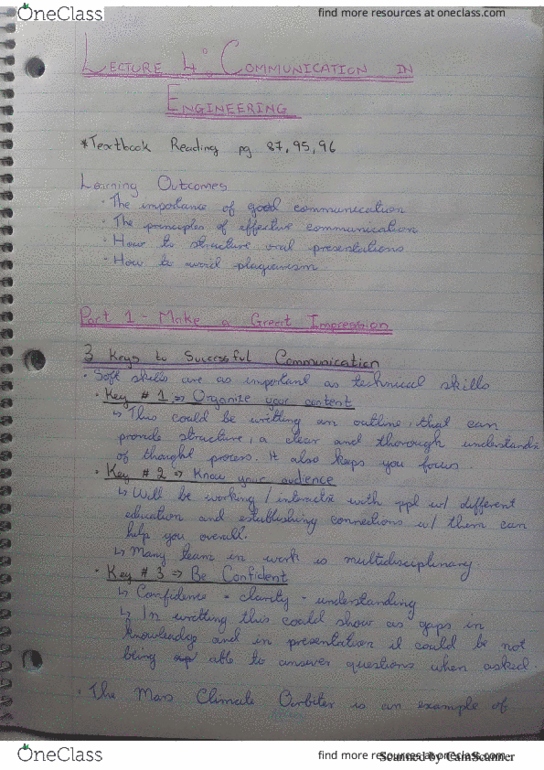 OneClass
find more resources at oneclass.com
LECTURE 4: COMMUNICATION IN
ENGINEERING
*Textbook Reading pg 87, 95, 96
Learning Outcomes
· The importance of good communication
· The principles of effective communication
· How to structure oral presentations
· How to avoid plagiarism
Part 1 - Make a Great Impression
3 Keys to Successful Communication
· Soft skills are as important as technical skills
· Key # 1 => Organize your content
↳ This could be writting an outline, that can
provide structure, a clear and thorough understands
of thought process. It also keeps you focus.
· Key # 2 => Know your audience
↳ Will be working / interacte with ppl w/ different
education and establishing connections w/ them can
help you overall.
↳ Many team in work is multidisciplinary
· Key # 3 => Be Confident
↳ Confidence = clarity = understanding
↳ In writting this could show as gaps in
knowledge and in presentation it could be not
being able to answer questions when asked.
· The Mars Climate Orbiter is an example of
OneClass
find more resources at oneclass.com
Scanned by CamScanner